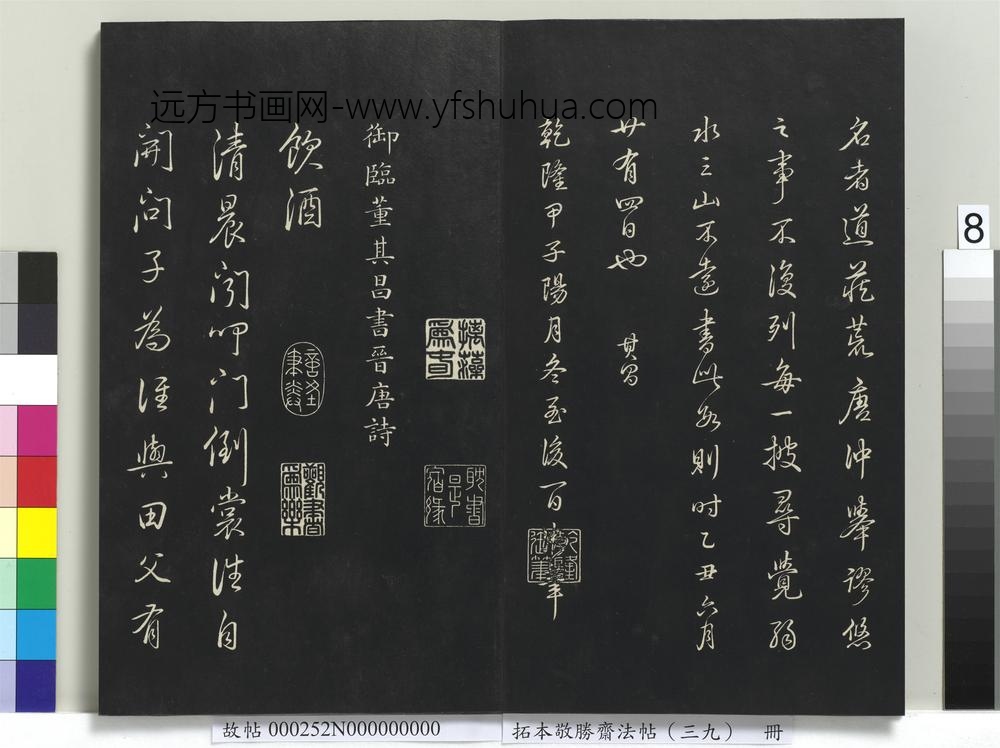 远方书画网-www.yfshuhua.com
名者道藏荒唐沖舉謬悠
之事不復列每一披尋覺弱
水三山不遠書此數則时乙丑六月
廿有四日也 其昌
乾隆甲子陽月冬至後一日
乾隆御筆
摛藻為春
耽書是宿緣
御臨董其昌書晉唐詩
觀書為樂
飲酒
清晨聞叩門倒裳往自
開問子為誰與田父有
8
故帖 000252N000000000
拓本敬勝齋法帖（三九） 冊